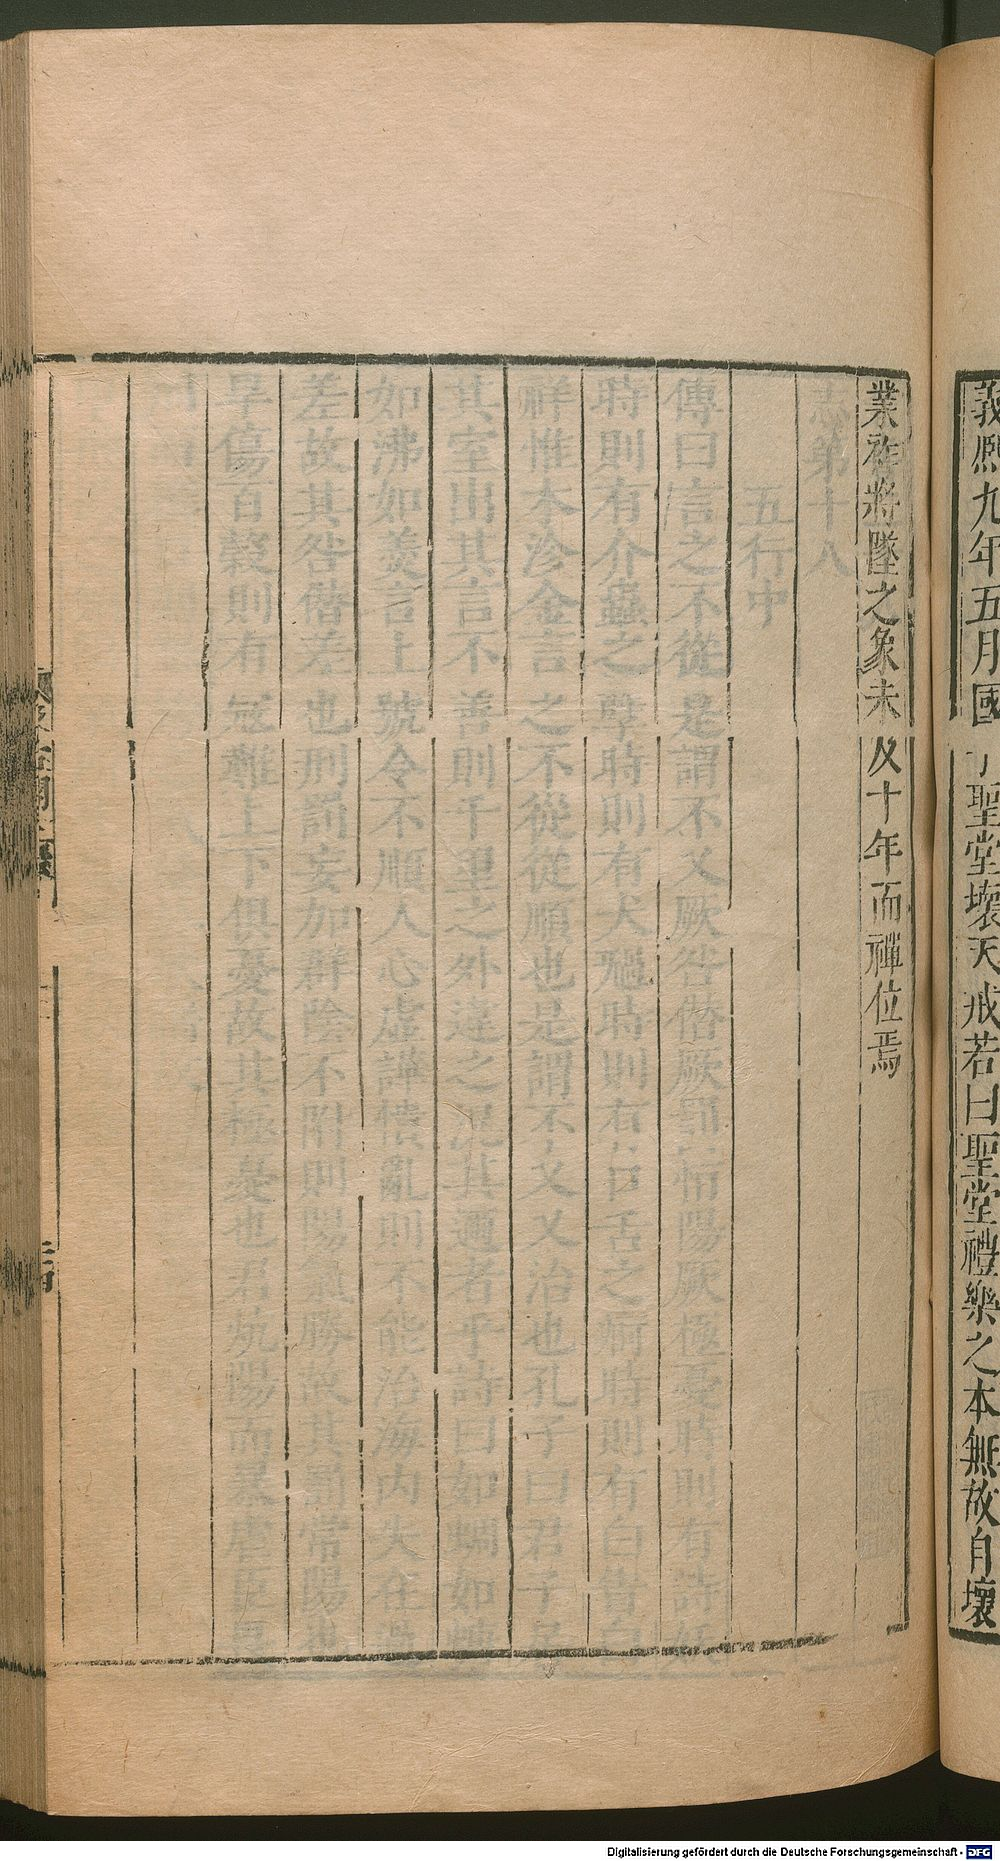 義熙九年五月國子聖堂壞天戒若曰聖堂禮樂之本無故自壞
業祚將墜之象未及十年而禪位焉
志第十八
五行中
傳曰言之不從是謂不乂厥咎僭厥罰恒陽厥極憂時則有詩妖
時則有介蟲之孽時則有犬禍時則有口舌之痾時則有白眚白
祥惟木沴金言之不從從順也是謂不乂乂治也孔子曰君子居
其室出其言不善則千里之外違之況其邇者乎詩曰如蜩如螗
如沸如羹言上號令不順人心虛譁憒亂則不能治海內失在過
差故其咎僭差也刑罰妄加群陰不附則陽氣勝故其罰常陽也
旱傷百穀則有寇難上下俱憂故其極憂也君炕陽而暴虐臣畏
Digitalisierung gefördert durch die Deutsche Forschungsgemeinschaft - DFG